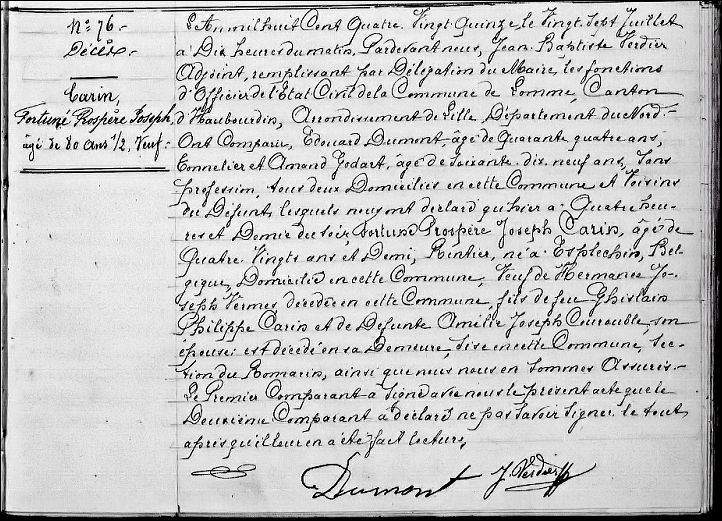 N° 76.
Décès.
Carin,
Fortuné Prospère Joseph,
âgé de 80 ans 1/2, Veuf.
L'An mil huit Cent Quatre Vingt Quinze le Vingt Sept Juillet
à Dix heures du matin, Pardevant nous, Jean Baptiste Verdier
Adjoint, remplissant par Délégation du Maire, les fonctions
d'Officier de l'Etat Civil de la Commune de Lomme, Canton
d'Haubourdin, Arrondissement de Lille, Département du Nord.
Ont Comparu, Edouard Dumont, âgé de Quarante quatre ans,
Tonnelier et Amand Godart, âgé de Soixante dix neuf ans, Sans
profession, tous deux Domiciliés en cette Commune et Voisins
du Défunt, lesquels nous ont déclaré qu'hier à Quatre heu-
res et Demie du soir, Fortuné Prospère Joseph Carin, âgé de
Quatre Vingts ans et Demi, Rentier, né à Esplechin, Bel-
gique, Domicilié en cette Commune, Veuf de Hermance Jo-
seph Vermes, décédée en cette Commune, fils de feu Ghislain
Philippe Carin et de Défunte Amélie Joseph Courouble, son
épouse: est décédé en sa Demeure, Sise en cette Commune, Sec-
tion du Romarin, ainsi que nous nous en Sommes Assurés.-
Le Premier Comparant a Signé avec nous le présent acte que le
Deuxième Comparant a déclaré ne pas Savoir Signer le tout
après qu'il leur en a été fait lecture,
Dumont J. Verdier